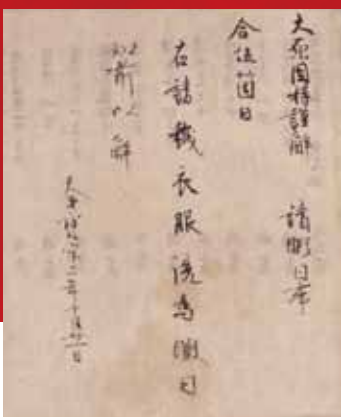 大原国持謹解　請暇日事
合伍箇日
右請穢衣服洗為暇日
如前以解
天平宝字二年十月廿一日